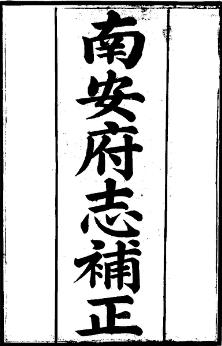 南安府志補正